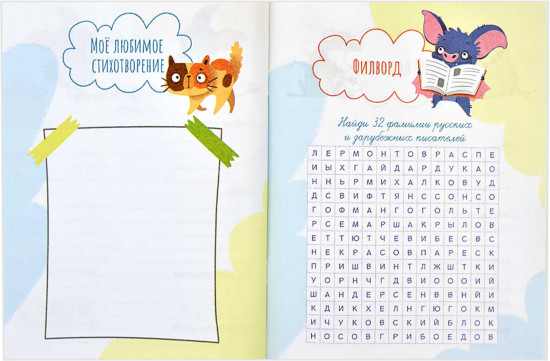 Моё любимое
стихотворение
Филворд
Найди 32 фамилии русских
и зарубежных писателей
Л Е Р М О Н Т О В Р А С П Е
И Ы Х Г А Й Д А Р Д У К А О
Н Н Ь Р М И Х А Л К О В У Д
Д С В И Ф Т Я Н С С О Н С О
Г О Ф М А Н Г О Г О Л Ь Т Е
Р С Е М А Р Ш А К Р Ы Л О В
Е Т Т Ю Т Ч Е В И Б Е С В С
Н Е К Р А С О В П А Р Е С К
П Р И Ш В И Н Т Л Ж Ш Т К И
У О Р Н Ч Г Д В И О О О И Й
Ш А Н Д Е Р С Е Н В В Н Й И
К Д И К Х Е Л Н Г Ю Г О К М
И Ч У К О В С К И Й Б Л О К
Н О С О В Г Р И Б О Е Д О В